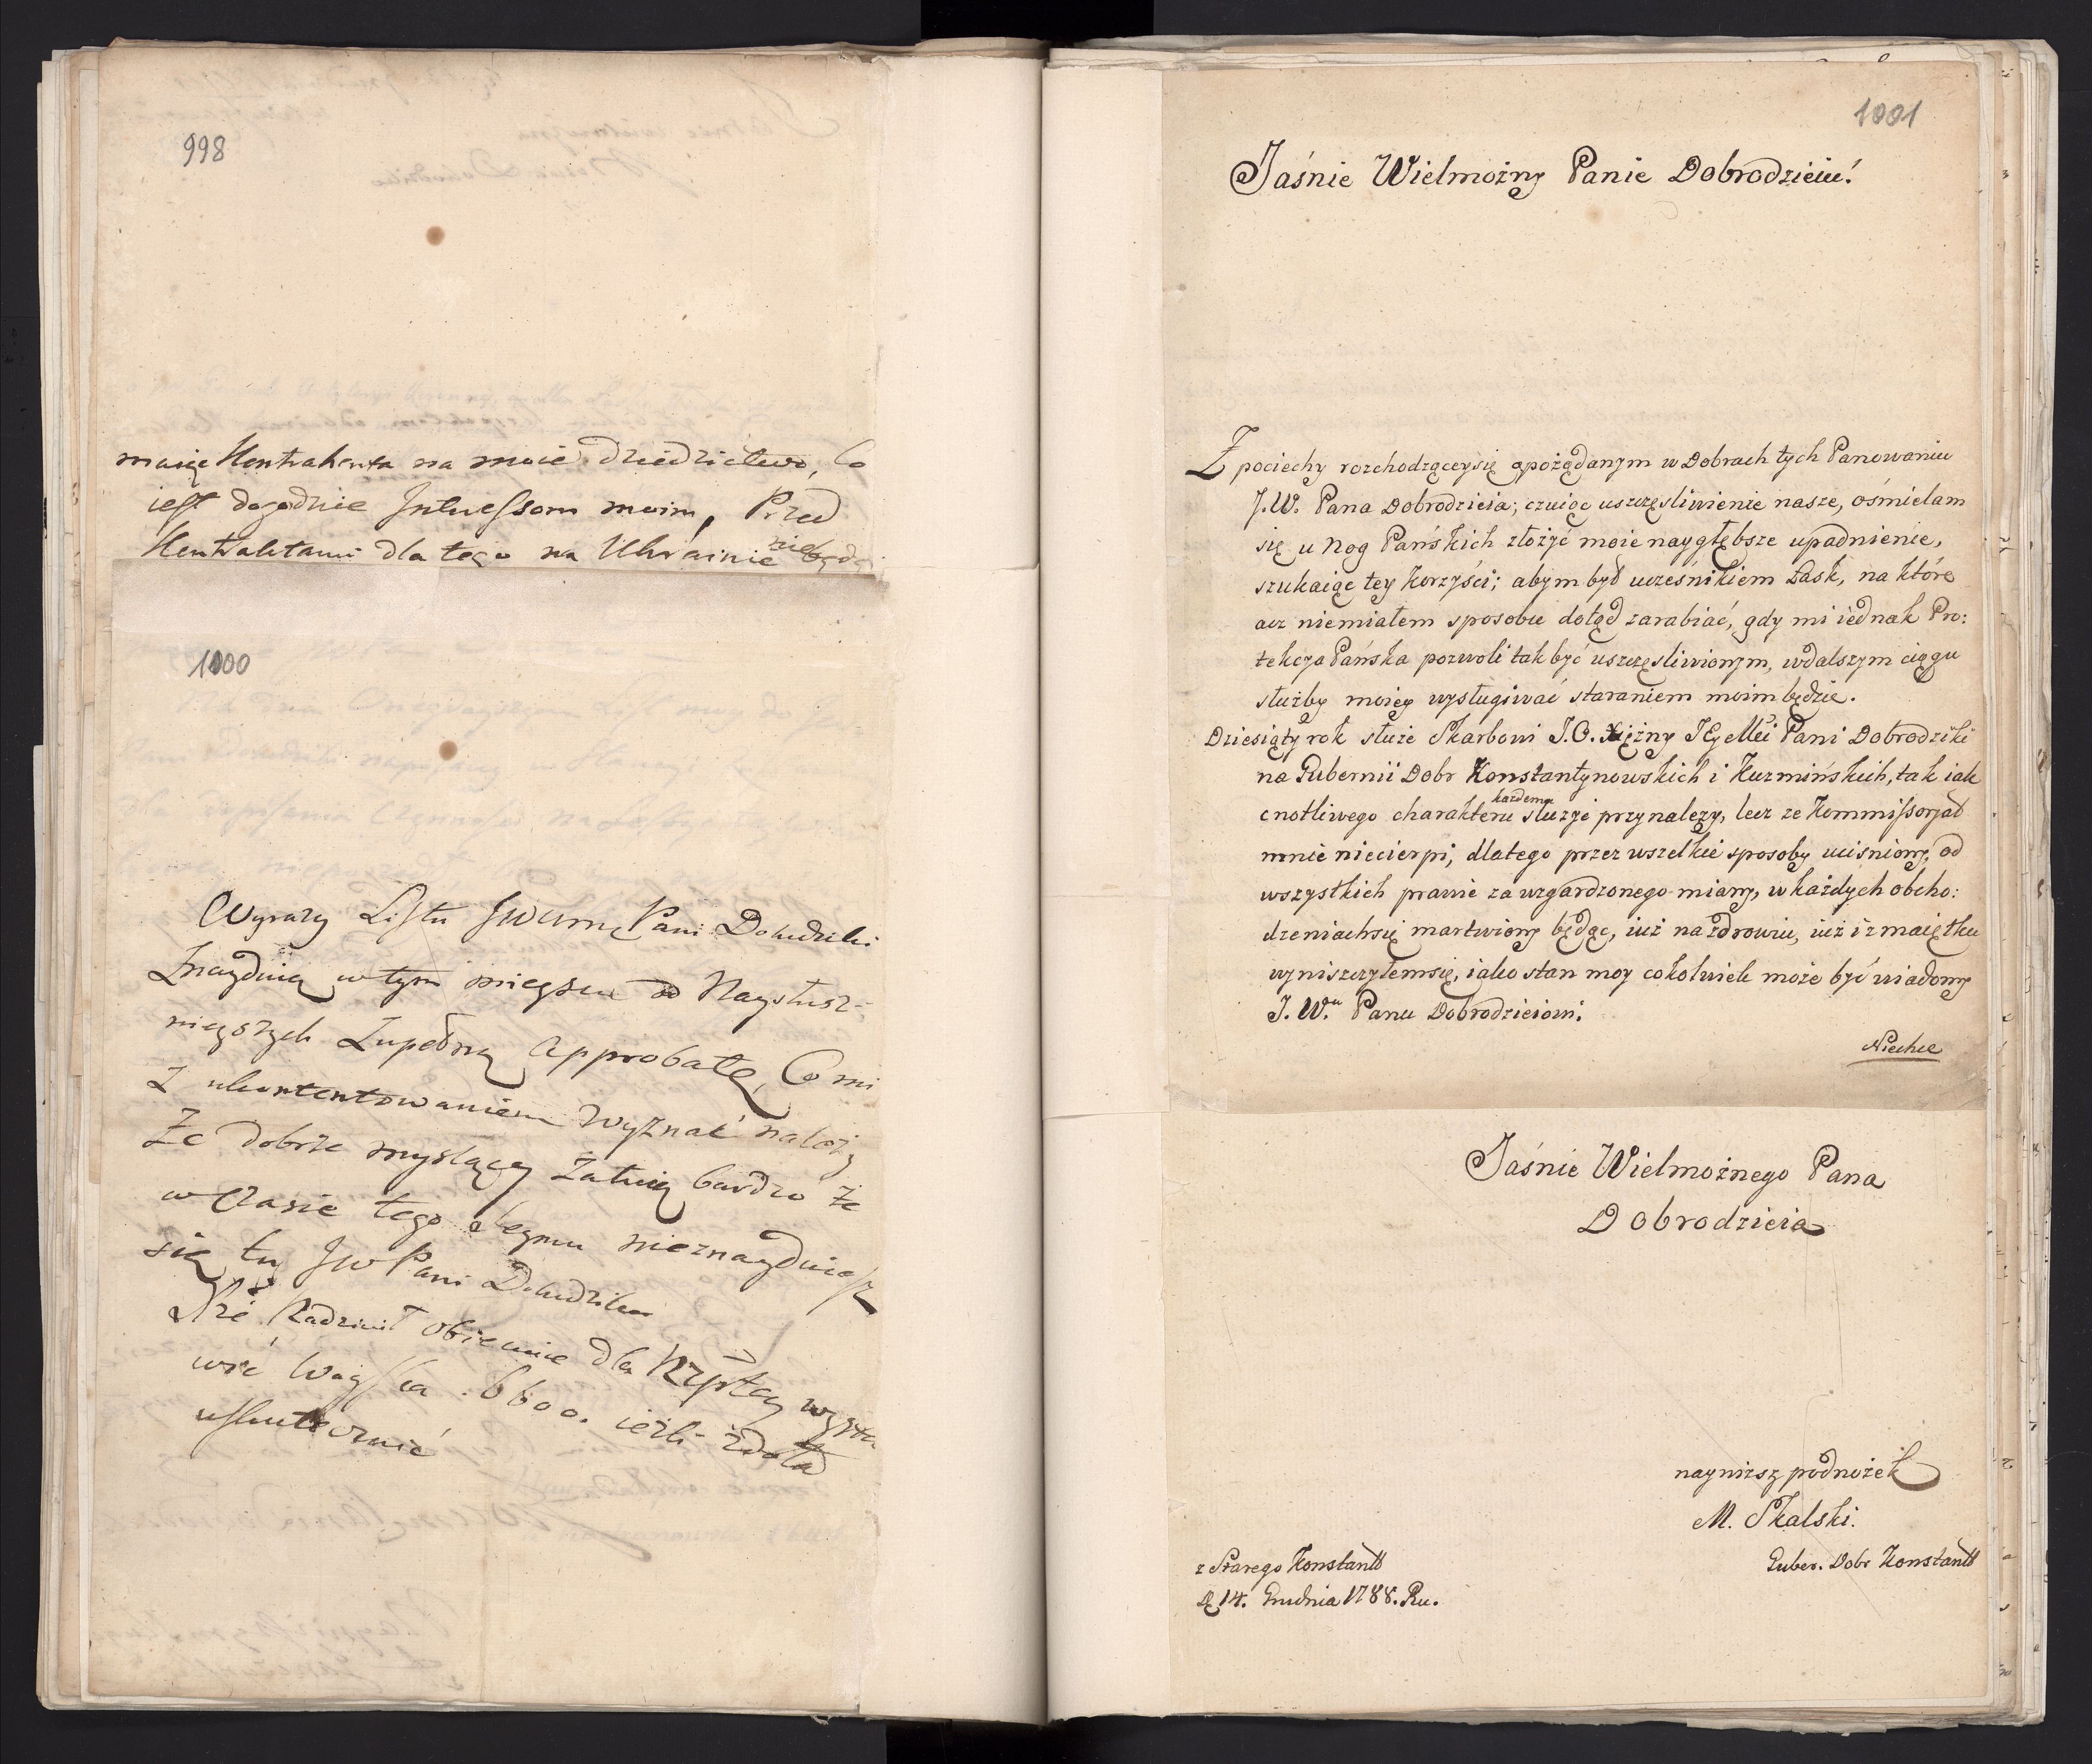 998
maiąc Kontrahenta na moie dziedzictwo, Co
iest dogodnie Interessom moim, Przed
Kontraktami dla tego na Ukrainie nie będę
1000
Wyrazy Listu JW Pani Dobrodziki
Znayduią w tym mieyscu Naysłusz-
nieyszych Zupełną Approbatę, Co mi
z ukontentowaniem wyznać należy
Ze dobrze myslący żałuią bardzo że
w czasie tego Seymu nieznayduiesz
się tu JW Pani Dobrodziko
Xże Radziwił obiecuie dla Rzpltey wysta
wić Woyska 6600. ieżli zdoła
uskutecznić
1001
Jaśnie Wielmożny Panie Dobrodzieiu!
Z pociechy rozchodzącey się opożądanym w Dobrach tych Panowaniu
J.W. Pana Dobrodzieia; czuiąc uszczęsliwienie nasze, ośmielam
się u Nog Pańskich złożyć moie naygłębsze upadnienie,
szukaiąc tey Korzyści; abym był ucześnikiem Łask, na które
acz niemiałem sposobu dotąd zarabiać, gdy mi iednak Pro:
tekcya Pańska pozwoli tak być uszczęsliwionym, w dalszym ciągu
służby moiey wysługiwać staraniem moim będzie.
Dziesiąty rok służę Skarbowi J.O. Xiężny JEyMci Pani Dobrodziki
na Gubernii Dobr Konstantynowskich i Kuzmińskich, tak iak
cnotliwego charakteru każdemu służyć przynależy, lecz ze Kommissoryat
mnie niecierpi, dlatego przez wszelkie sposoby uciśniony, od
wszystkich prawie za wzgardzonego miany, w każdych obcho:
dzeniach się martwiony będąc, iuż na zdrowiu, iuż i z maiętku
wyniszczyłem się, iako stan moy cokolwiek może być wiadomy
J. Wu. Panu Dobrodzieiowi.
Niechce
Jaśnie Wielmożnego Pana
Dobrodzieia
nayniższy podnożek
M. Skalski.
Guber. Dobr Konstantt
z Starego Konstantt
D 14. Grudnia 1788. Ru.